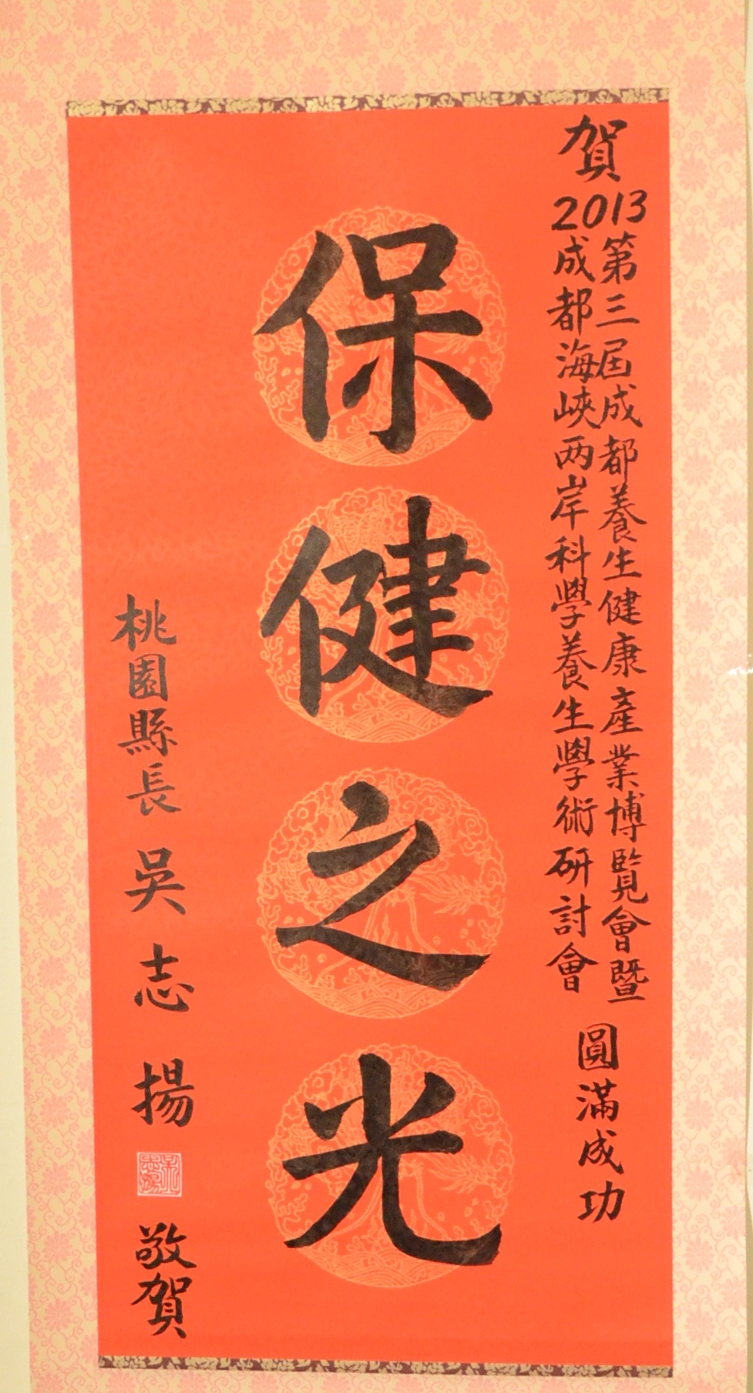 賀
2013
第三屆成都養生健康產業博覽會暨
成都海峽两岸科學養生學術研討會
圓滿成功
保健之光
桃園縣長吳志揚
敬賀